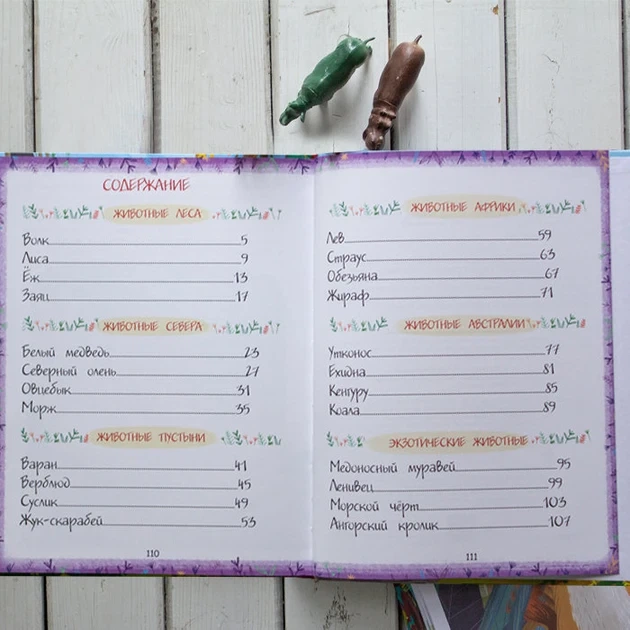 СОДЕРЖАНИЕ
ЖИВОТНЫЕ ЛЕСА
Волк 5
Лиса 9
Ёж 13
Заяц 17
ЖИВОТНЫЕ СЕВЕРА
Белый медведь 23
Северный олень 27
Овцебык 31
Морж 35
ЖИВОТНЫЕ ПУСТЫНИ
Варан 41
Верблюд 45
Суслик 49
Жук-скарабей 53
110
ЖИВОТНЫЕ АФРИКИ
Лев 59
Страус 63
Обезьяна 67
Жираф 71
ЖИВОТНЫЕ АВСТРАЛИИ
Утконос 77
Ехидна 81
Кенгуру 85
Коала 89
ЭКЗОТИЧЕСКИЕ ЖИВОТНЫЕ
Медоносный муравей 95
Ленивец 99
Морской чёрт 103
Ангорский кролик 107
111